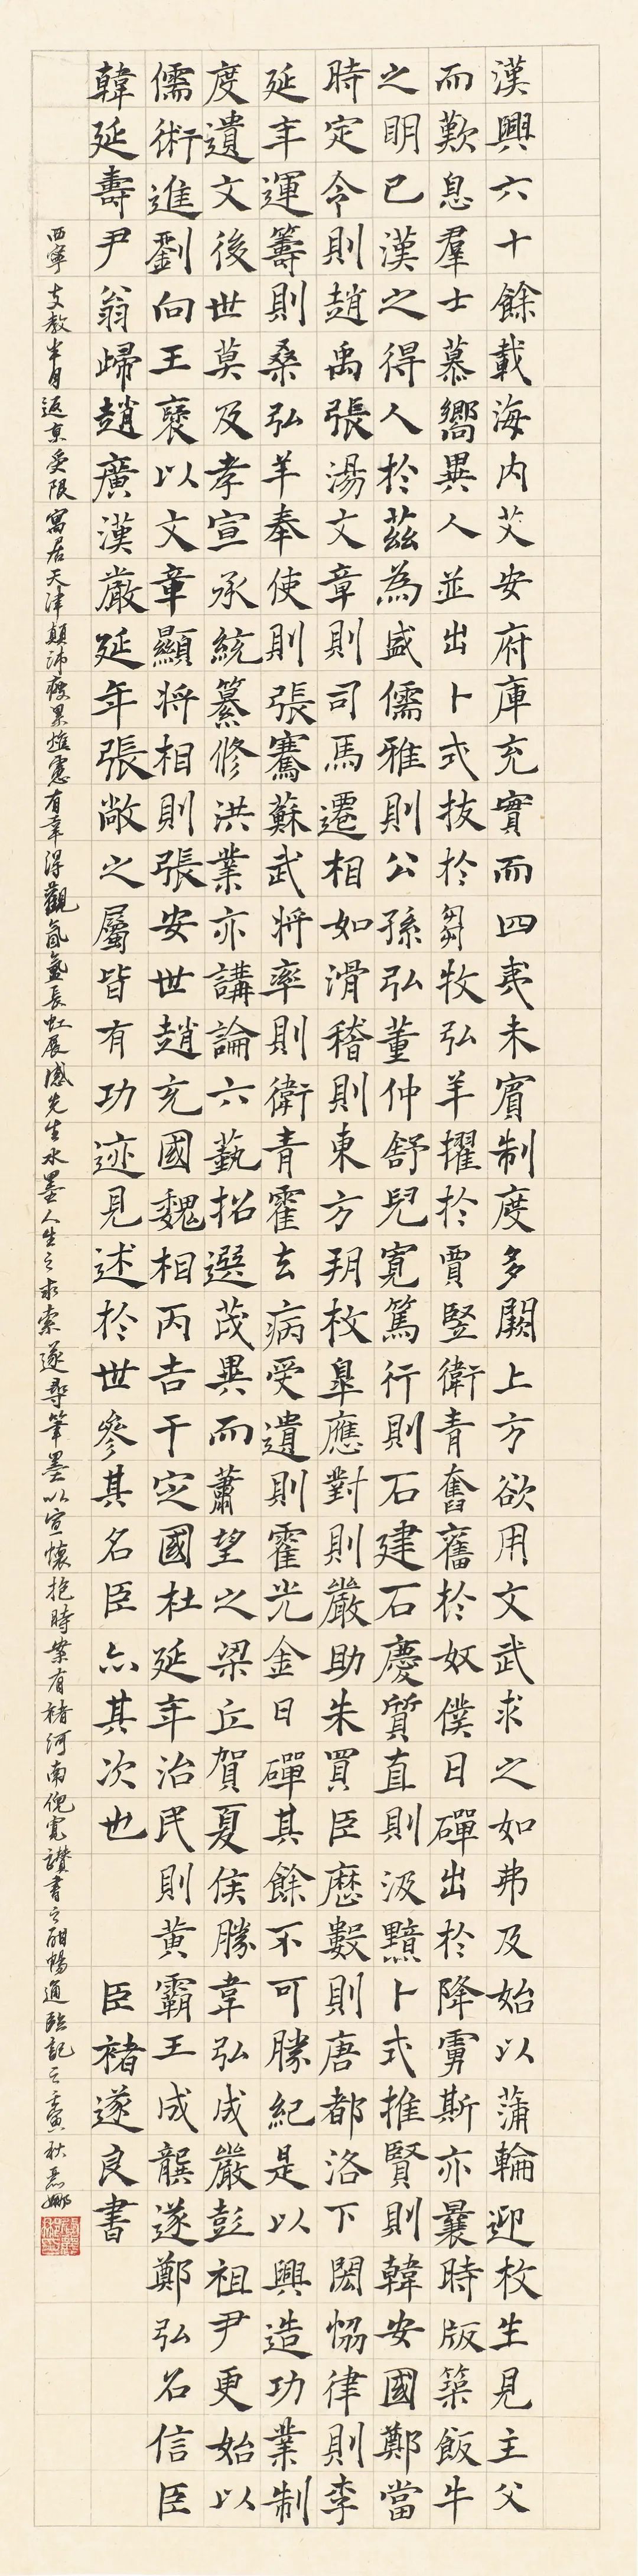 漢興六十餘載海内艾安府庫充實而四夷未賓制度多闕上方欲用文武求之如弗及始以蒲輪迎枚生見主父
而歎息羣士慕嚮異人並出卜式拔於芻牧弘羊擢於賈豎衛青奮奮於奴僕日磾出於降虜斯亦曩時版築飯牛
之明已漢之得人於茲為盛儒雅則公孫弘董仲舒兒寬篤行則石建石慶質直則汲黯卜式推賢則韓安國鄭當
時定令則趙禹張湯文章則司馬遷相如滑稽則東方朔枚皐應對則嚴助朱買臣歷數則唐都洛下閎恊律則李
延年運籌則桑弘羊奉使則張騫蘇武將率則衛青霍去病受遺則霍光金日磾其餘不可勝紀是以興造功業制
度遺文後世莫及孝宣承統纂修洪業亦講論六藝招選茂異而蕭望之梁丘賀夏侯勝韋弘成嚴彭祖尹更始以
儒術進劉向王褒以文章顯將相則張安世趙充國魏相丙吉于定國杜延年治民則黃霸王成龔遂鄭弘召信臣
韓延壽尹翁歸趙廣漢嚴延年張敞之屬皆有功迹見述於世參其名臣亦其次也 臣褚遂良書
西寧支教半月返京受限寓居天津顛沛疲累憔悴有幸得觀氤氳長虹展感先生水墨人生之求索遂尋筆墨以宣懷抱時案有褚河南倪寬讚書之酣暢通臨記之壬寅秋